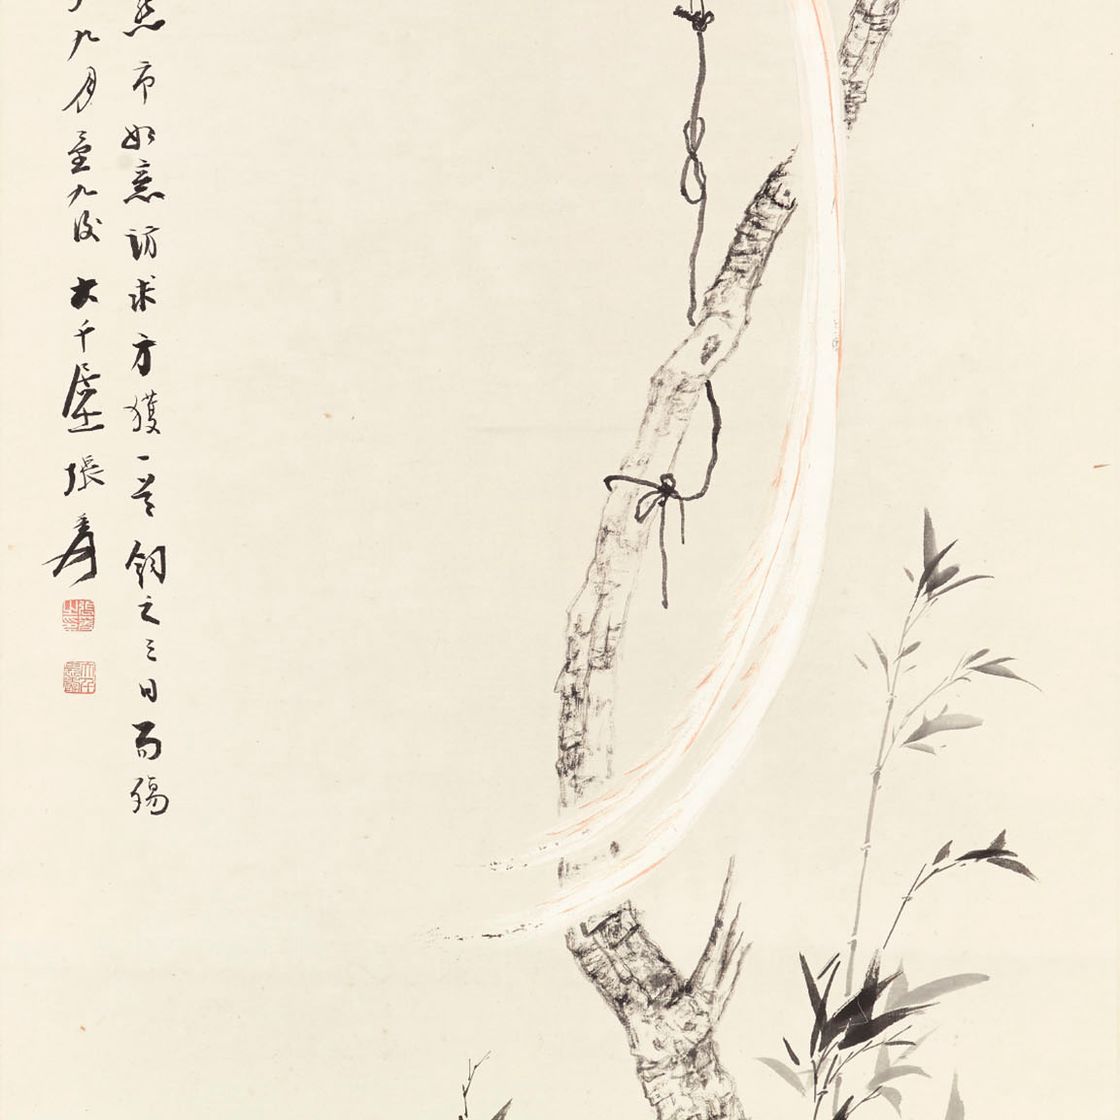 市如意訪求方獲一首飼之三日而殤
九月重九後大千居士張爰